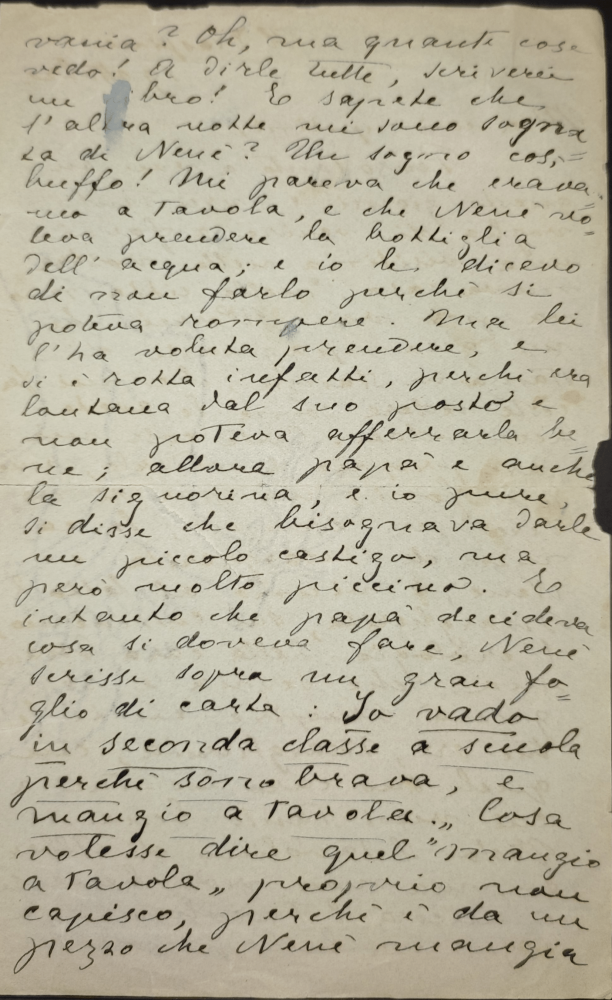 vania? Oh, ma quante cose
vedo! A dirle tutte, scriverei
un libro! E sapete che
l'altra notte mi sono sogna
ta di Nenè? Un sogno così=
buffo! Mi pareva che erava=
mo a tavola, e che Nenè vo=
leva prendere la bottiglia
dell'acqua; e io le dicevo
di non farlo perchè si
poteva rompere. Ma lei
l'ha voluta prendere, e
si è rotta infatti, perchè era
lontana dal suo posto e
non poteva afferrarla be=
ne; allora papà e anche
la signorina, e io pure,
si disse che bisognava darle
un piccolo castigo, ma
però molto piccino. E
intanto che papà decideva
cosa si doveva fare, Nenè
scrisse sopra un gran fo=
glio di carta: Io vado
in seconda classe a scuola
perchè sono brava, e
mangio a tavola.„ Cosa
volesse dire quel "mangio
a tavola„ proprio non
capisco, perchè è da un
pezzo che Nenè mangia